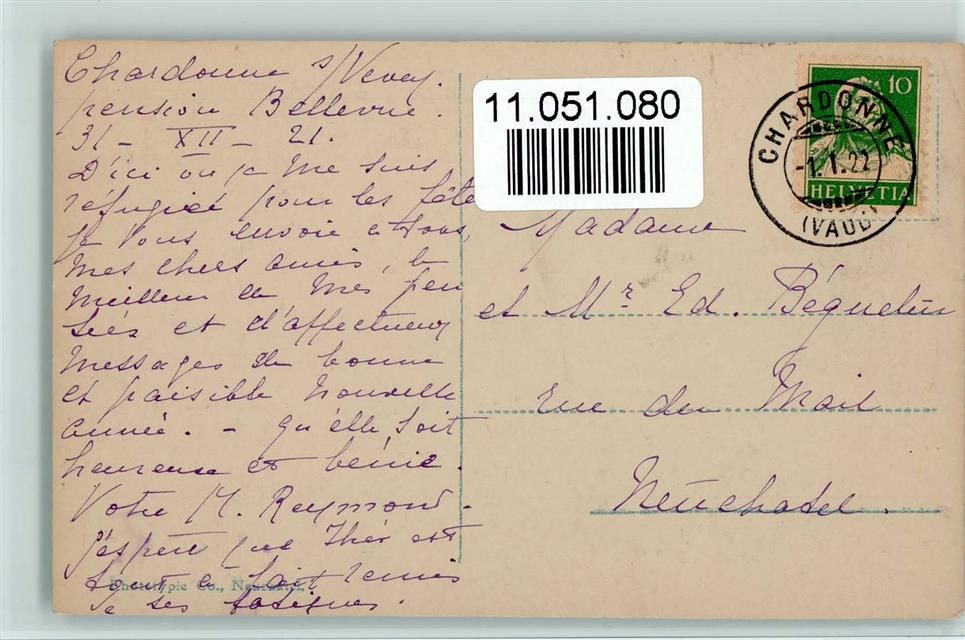 Chardonne s/Vevey.
pension Bellevue.
31 - XII - 21.
D'ici où je me suis
réfugiée pour les fêtes
je vous envoie à tous,
mes chers amis, le
meilleur de mes pen
sées et d'affectueux
messages de bonne
et paisible nouvelle
année. - Qu'elle soit
heureuse et bénie.
Votre M. Reymond.
J'espère que est
tout à fait remis
de ses fatigues.
Phototypie Co., Neuchâtel
11.051.080
10
HELVETIA
CHARDONNE
-1.I.22
(VAUD)
Madame
et Mr. Ed. Béguelin
rue du Mail
Neuchatel.